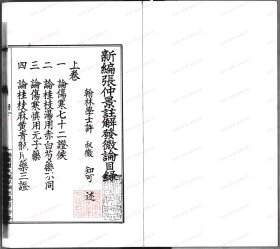 新編張仲景註解發微論目錄
翰林學士許 叔微 知可 述
上卷
一 論傷寒七十二證候
二 論桂枝湯用赤白芍藥不同
三 論傷寒慎用圓子藥
四 論桂枝麻黃青龍用藥三證